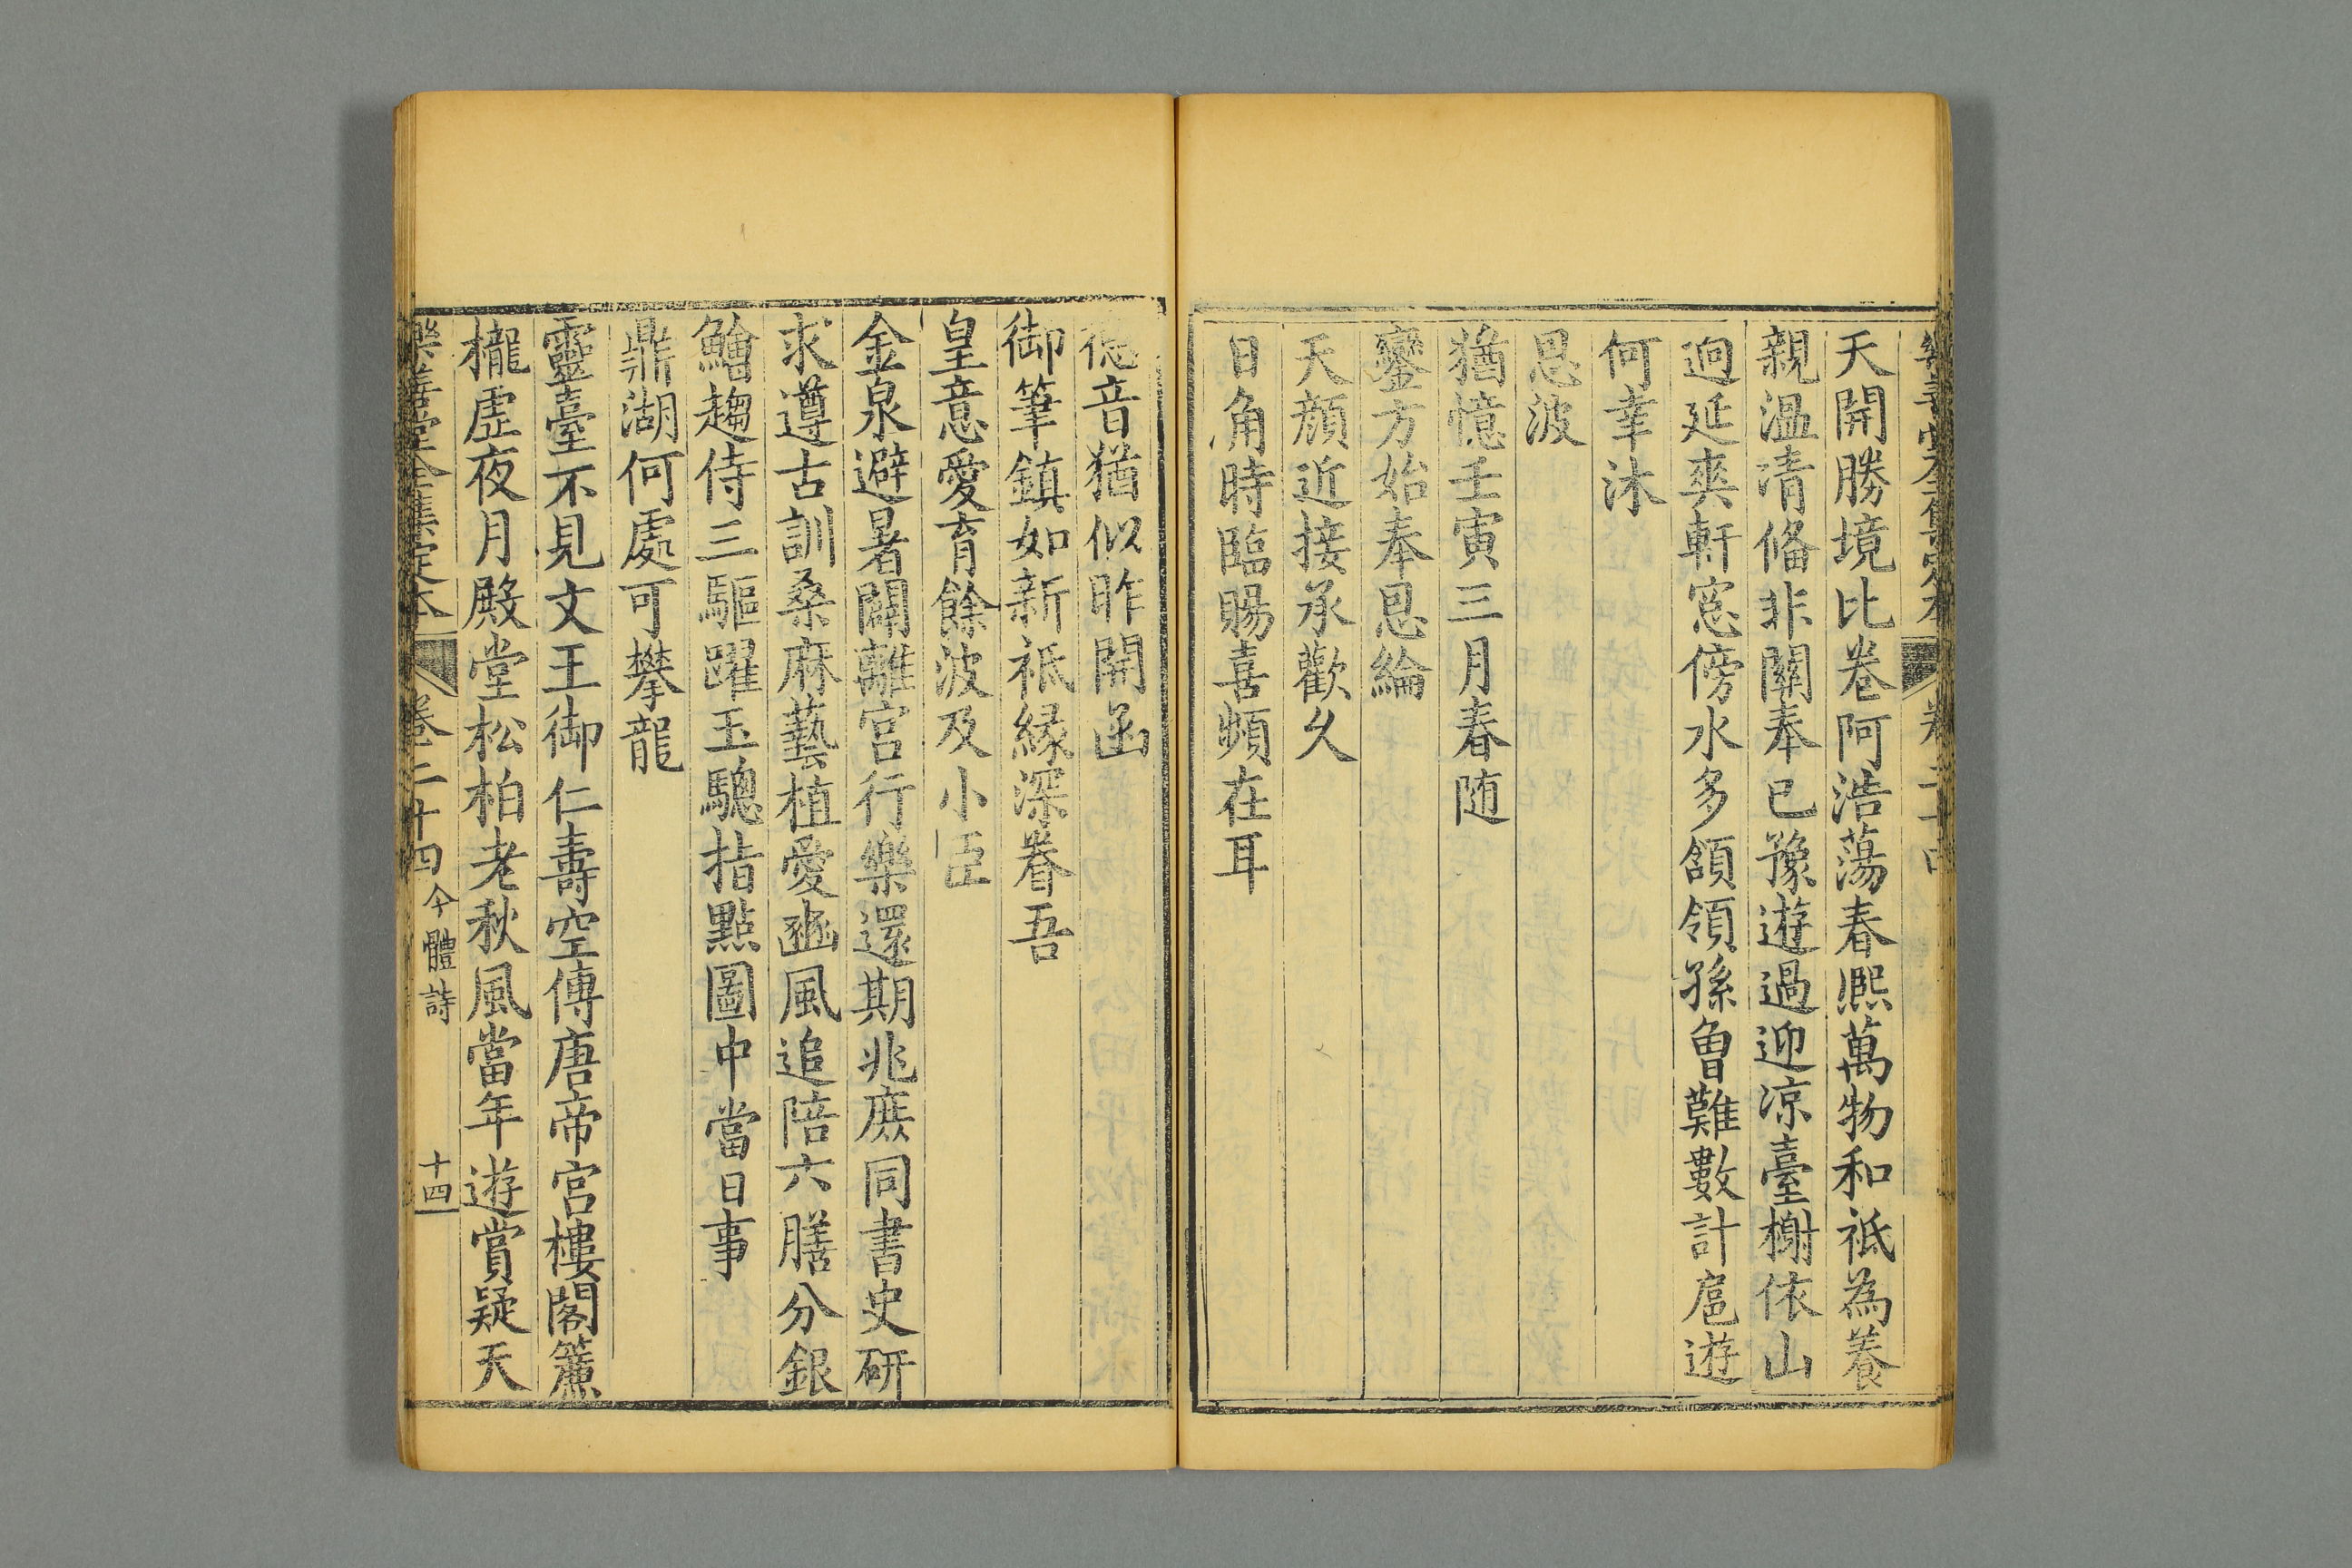 天開勝境比卷阿浩蕩春熈萬物和祗為養
親溫凊俻非關奉已豫遊過迎涼臺榭依山
逈延爽軒窓傍水多頷領孫曾難數計扈遊
何幸沐
恩波
猶憶壬寅三月春随
鑾方始奉恩綸
天顔近接承歡久
日角時臨賜喜頻在耳
德音猶似昨開函
御筆鎮如新祗縁深眷吾
皇意愛育餘波及小臣
金泉避暑闢離宮行樂還期兆庶同書史研
求遵古訓桑麻藝植愛豳風追陪六膳分銀
鱠趨侍三驅躍玉驄指點圖中當日事
鼎湖何處可攀龍
靈臺不見文王御仁壽空傳唐帝宮樓閣簾
櫳虛夜月殿堂松柏老秋風當年遊賞疑天
樂善堂全集定本 卷二十四 今體詩 十四